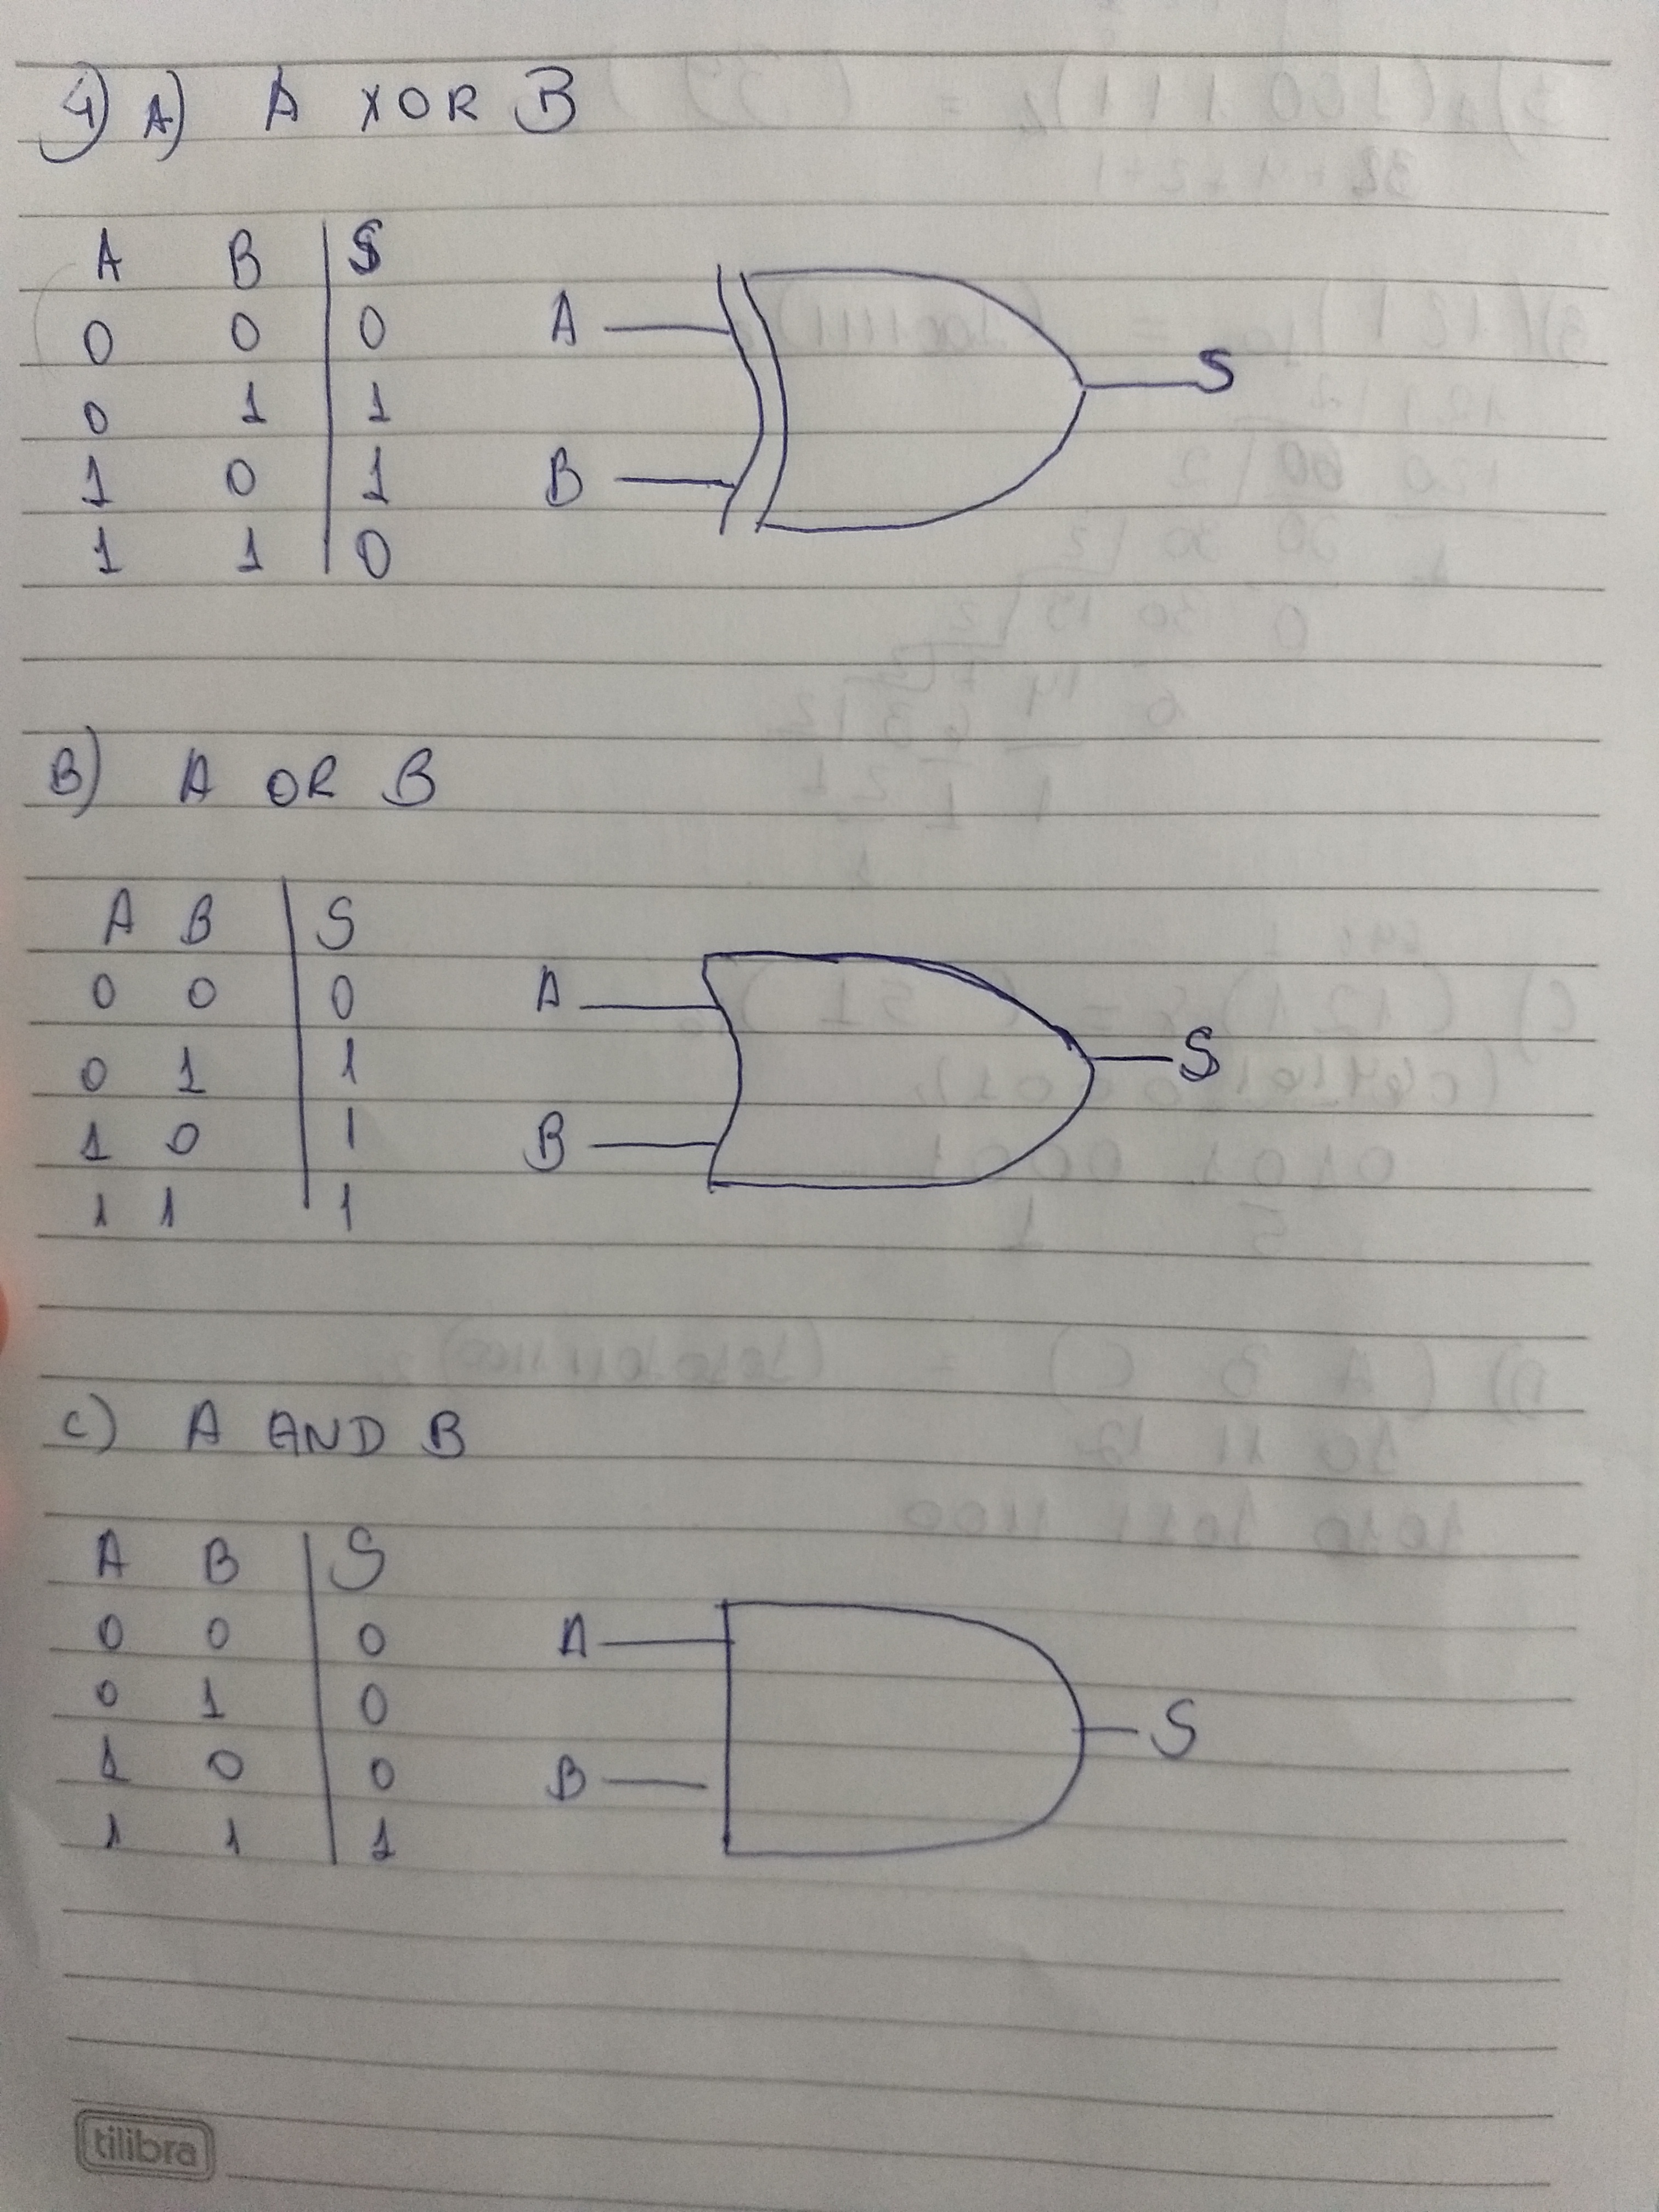 4) A) A XOR B
A B S
0 0 0
0 1 1
1 0 1
1 1 0
A
B
S
B) A OR B
A B S
0 0 0
0 1 1
1 0 1
1 1 1
A
B
S
C) A AND B
A B S
0 0 0
0 1 0
1 0 0
1 1 1
A
B
S
tilibra